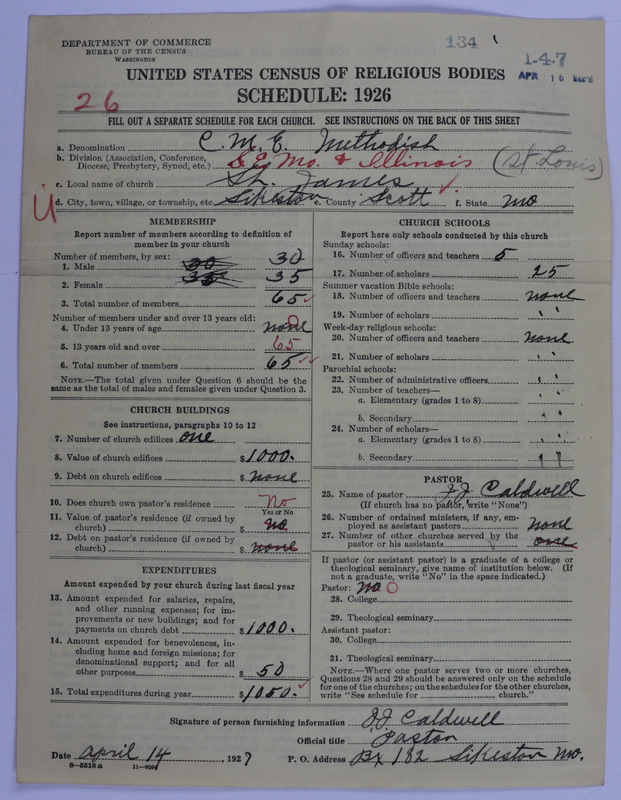 DEPARTMENT OF COMMERCE
BUREAU OF THE CENSUS
WASHINGTON
134
1-4-7
APR 16
UNITED STATES CENSUS OF RELIGIOUS BODIES
26
SCHEDULE: 1926
FILL OUT A SEPARATE SCHEDULE FOR EACH CHURCH. SEE INSTRUCTIONS ON THE BACK OF THIS SHEET
a. Denomination C. M. E. Methodish
b. Division (Association, Conference, Diocese, Presbytery, Synod, etc.) S.E. Mo. & Illinois (St Louis)
c. Local name of church St. James
U
d. City, town, village, or township, etc. Sikeston e. County Scott f. State Mo
MEMBERSHIP
Report number of members according to definition of
member in your church
Number of members, by sex:
1. Male 30 30
2. Female 35 35
3. Total number of members 65
Number of members under and over 13 years old:
4. Under 13 years of age none 0
5. 13 years old and over 65
6. Total number of members 65
NOTE.—The total given under Question 6 should be the
same as the total of males and females given under Question 3.
CHURCH BUILDINGS
See instructions, paragraphs 10 to 12
7. Number of church edifices one
8. Value of church edifices $ 1000.
9. Debt on church edifices $ none
10. Does church own pastor's residence No
Yes or No
11. Value of pastor's residence (if owned by
church) $ no
12. Debt on pastor's residence (if owned by
church) $ none
EXPENDITURES
Amount expended by your church during last fiscal year
13. Amount expended for salaries, repairs,
and other running expenses; for im-
provements or new buildings; and for
payments on church debt $ 1000.
14. Amount expended for benevolences, in-
cluding home and foreign missions; for
denominational support; and for all
other purposes $ 50
15. Total expenditures during year $ 1050.
CHURCH SCHOOLS
Report here only schools conducted by this church
Sunday schools:
16. Number of officers and teachers 5
17. Number of scholars 25
Summer vacation Bible schools:
18. Number of officers and teachers none
19. Number of scholars " "
Week-day religious schools:
20. Number of officers and teachers none
21. Number of scholars " "
Parochial schools:
22. Number of administrative officers " "
23. Number of teachers—
a. Elementary (grades 1 to 8) " "
b. Secondary " "
24. Number of scholars—
a. Elementary (grades 1 to 8) " "
b. Secondary " "
PASTOR
25. Name of pastor J. J. Caldwell
(If church has no pastor, write "None")
26. Number of ordained ministers, if any, em-
ployed as assistant pastors none
27. Number of other churches served by the
pastor or his assistants one
If pastor (or assistant pastor) is a graduate of a college or
theological seminary, give name of institution below. (If
not a graduate, write "No" in the space indicated.)
Pastor: No 0
28. College
29. Theological seminary
Assistant pastor:
30. College
31. Theological seminary
NOTE.—Where one pastor serves two or more churches,
Questions 28 and 29 should be answered only on the schedule
for one of the churches; on the schedules for the other churches,
write "See schedule for church."
Signature of person furnishing information J. J. Caldwell
Official title Pastor
Date April 14, 1927 P. O. Address Bx 182 Sikeston Mo.
8-5518 a